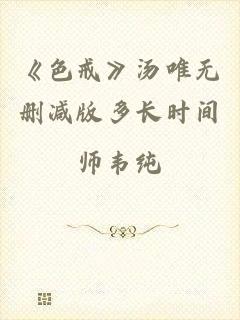 《色戒》汤唯无
删减版多长时间
师韦纯